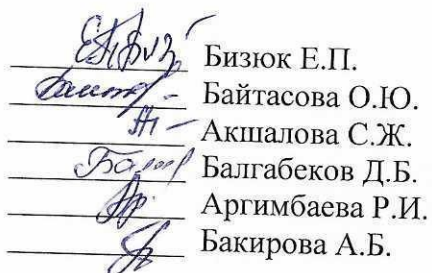 Бизюк Е.П.
Байтасова О.Ю.
Акшалова С.Ж.
Балгабеков Д.Б.
Аргимбаева Р.И.
Бакирова А.Б.